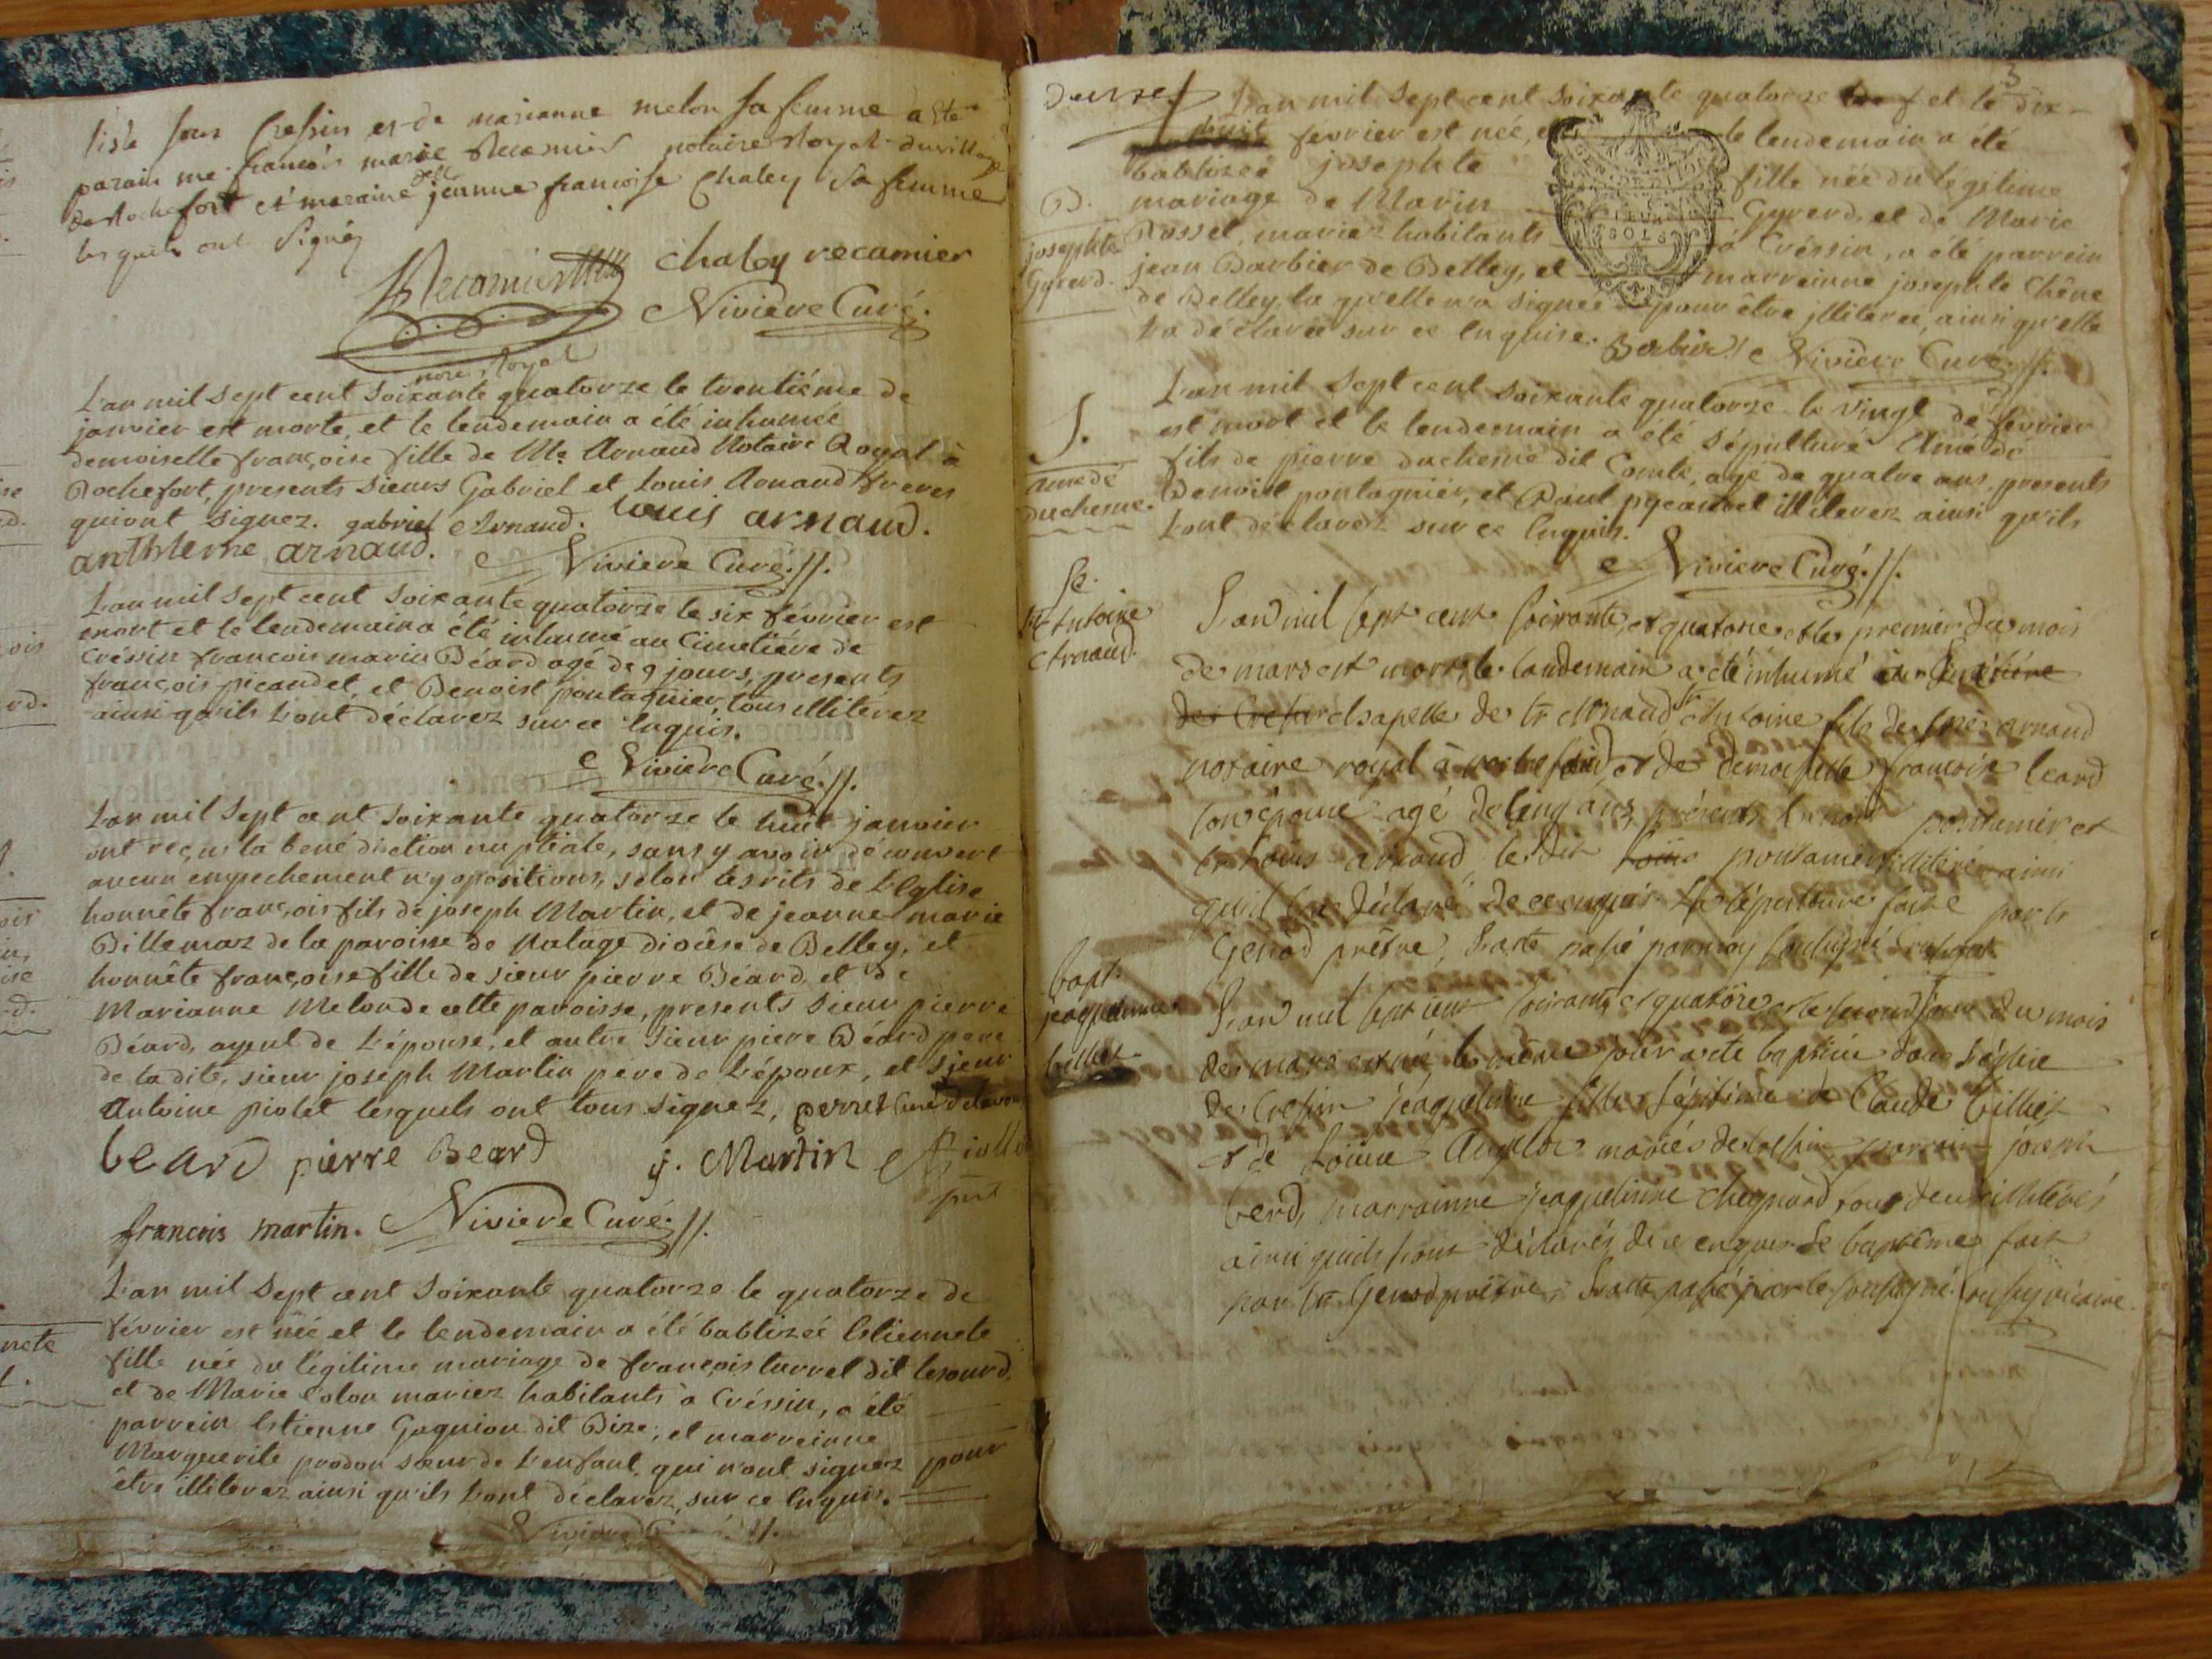 liste sous Cressin et de marianne melon sa femme a été
parain me francois marie Recamier notaire Royal du village
de Rochefort et maraine delle jeanne francoise Chaley sa femme
les quels ont signés
Recamier chaley recamier
nore Royal Nivière Curé.
L'an mil sept cent soixante quatorze le trentiéme de
janvier est morte, et le lendemain a été inhumeé
demoiselle françoise fille de Me Arnaud Notaire Royal à
Rochefort, presents sieurs Gabriel et Louis Arnaud freres
qui ont signez. gabriel Arnaud. Louis arnaud.
anthleme arnaud. Niviere Curé.//.
L'an mil sept cent soixante quatorze le six février est
mort et le lendemain a été inhumé au Cimetiére de
Créssin francois marin Béard agé de 9 jours, presents
françois picaudet, et Benoist pontagnier, tous illiterez
ainsi qu'ils l'ont déclarez sur ce Enquis.
Niviere Curé.//.
L'an mil sept cent soixante quatorze le huit janvier
ont reçus la béné diction nuptiale, sans y avoir découvert
aucun empechement n'y opositions, selon les rits de L'Eglise
honnête françois fils de joseph Martin, et de jeanne marie
Billemaz de la paroisse de Natage diocêse de Belley, et
honnête françoise fille de sieur pierre Béard, et de
Marianne Melon de cette paroisse, presents sieur pierre
Béard, ayeul de L'épouse, et autre sieur piere Béard pere
de ladite, sieur joseph Martin pere de L'époux, et sieur
Antoine piolet lesquels ont tous signez, perret Curé de lavours
beard pierre Beard j. Martin Piollet
francois martin. Niviere Curé.//. pnt
L'an mil sept cent soixante quatorze le quatorze de
février est née et le lendemain a été babtizeé Estiennete
fille née du légitime mariage de françois turrel dit lesourd,
et de Marie Colon mariez habitants à Créssin, a été
parrein Estienne Gagnion dit Bize, et marreinne
Marguerite prodon sœur de L'enfant, qui n'ont signez pour
être illiterez ainsi qu'ils L'ont déclarez, sur ce Enquis.
Niviere Curé.//.
3
deuxe L'an mil sept cent soixante quatorze et le dix-
huit février est née, et le lendemain a été
babtizeé josephte fille née du légitime
B. mariage de Marin Gyrerd, et de Marie
josephte Rosset, mariez habitants à Créssin, a été parrein
Gyrerd. jean Barbier de Belley, et marreinne josephte Chêne
de Belley, la quelle n'a signeé pour être jlliterée, ainsi qu'elle
la déclaré sur ce Enquise. Barbier Niviere Curé.//.
L'an mil sept cent soixante quatorze le vingt de février
S. est mort et le lendemain a été sépulturé Amedé
amedé fils de pierre ducheme dit Comte, agé de quatre ans, presents
ducheme. Benoist pontagnier, et Paul pycaudet illiterez ainsi qu'ils
L'ont déclarez sur ce Enquis.
Niviere Curé.//.
Se. L'an mil sept cent soixante et quatorze et le premier du mois
Sr Antoine de mars est mort, le landemain a été inhumé au Simétiére
Arnaud. de Cressin chapelle de Sr Arnaud Sr Antoine fils de Mre arnaud
notaire royal à rochefort, et de demoiselle francoise beard
son épouse agé de cinq ans, présents benoit pontanier et
Sr Louis arnaud, le dit pontanier illitéré ainsi
qu'il l'at déclaré de ce enquis la sépulture faite par Sr
Genod prêtre, L'acte passé par moy soussigné
bapt. L'an mil sept cent soixante et quatorze et le second jour du mois
jeaquelinne de mars est née, le même jour a été baptisée dans l'église
billiet de Cressin jéaquelinne fille légitime de Claude billiet
et de Louise mariés de Cressin parrain joseph
berd, marrainne jeaquelinne cheynard tous deux illitérés
ainsi quils l'ont déclarés de ce enquis le baptême fait
par Sr Genod prêtre, L'acte passé par le soussigné vicaire.